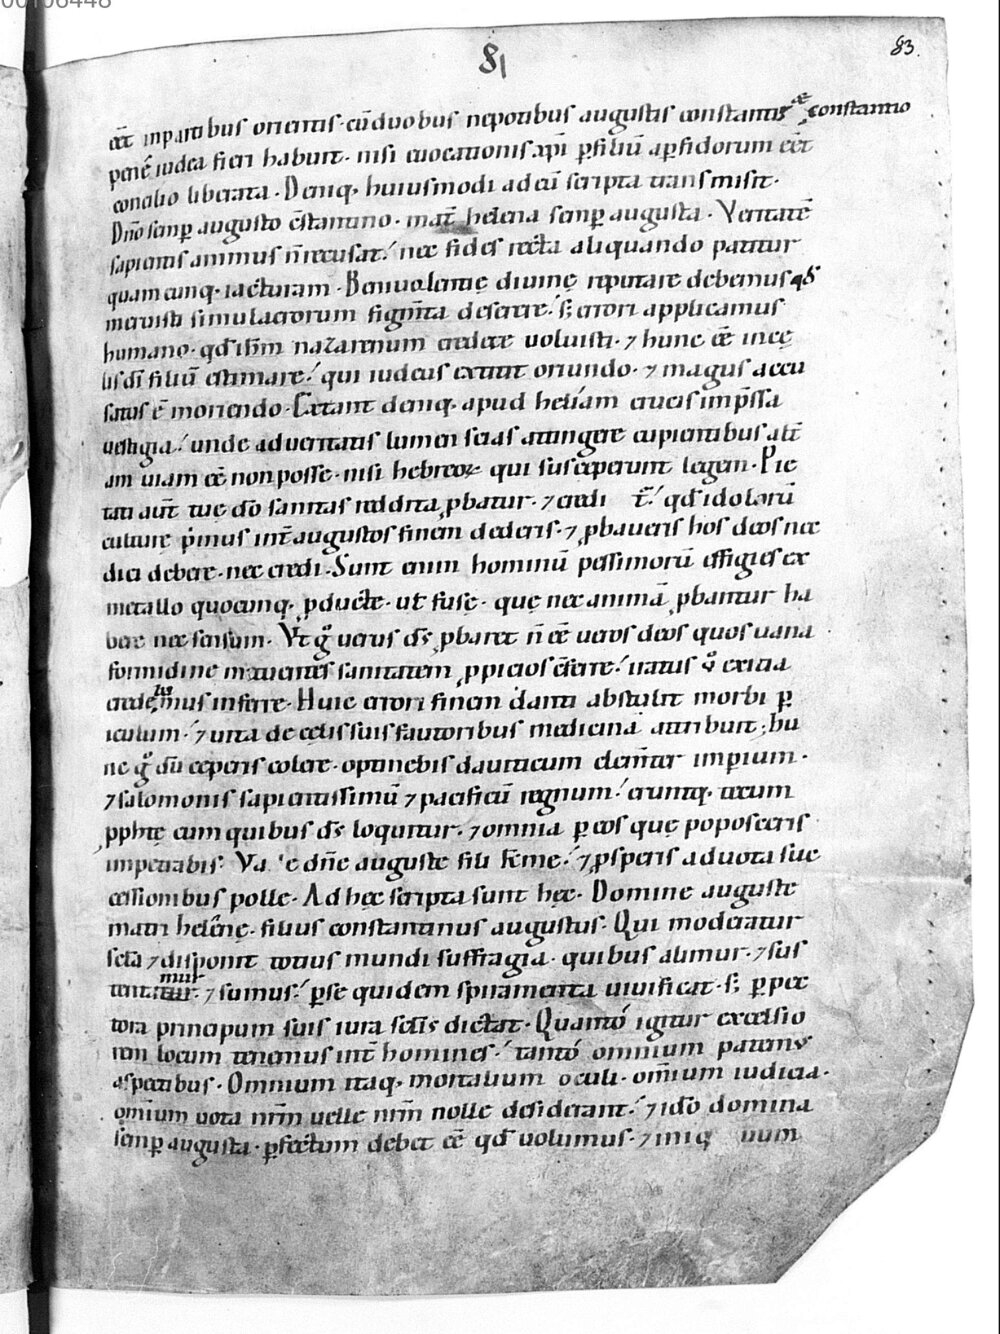 00106448
81
83.
eēt inpartibus orientis· cū duobus nepotibus augustis constante æ constantio
pene iudea fieri habuit· nisi euocationis xp̄i p̱ filiū a p̱fidorum eēt
concilio liberata· Deniq· huiusmodi ad eū scripta transmisit·
Dn̄o semp̱ augusto cōstantino· mat̄ helena semp̱ augusta· Veritatē
sapientis animus n̄ recusat! nec fides recta aliquando patitur
quamcunq· iacturam· Beniuolentię diuinę reputare debemus qđ
meruisti simulacrorum figm̄ta deserere! s; errori applicamus
humano· qđ ih̄m nazarenum credere uoluisti· ⁊ hunc eē in cę
lis dī filiū estimare! qui iudeus extitit oriundo· ⁊ magus accu
satus ē moriendo· Extant deniq· apud heliam crucis imp̄ssa
uestigia! unde ad ueritatis lumen scias attingere cupientibus alt̄
am uiam eē non posse· nisi hebreoꝝ qui susceperunt legem· Pie
tati aut̄ tuę ido sanitas reddita ꝓbatur· ⁊ credi t̄! qđ idolorū
culturę p̍mus int̄ augustos finem dederis· ⁊ ꝓbaueris hos deos nec
dici debere· nec credi· Sunt enim hominū pessimorū effigies ex
metallo quocunq· ꝓductę· ut̄ fusę· quę nec animā ꝓbantur ha
bere nec sensum· Vt gͦ uerus ds̄ ꝓbaret n̄ eē ueros deos quos uana
formidine metuentes sanitatem ꝓpicios cōferre! iratus u̍ exitia
crede mus inferre· Huic errori finem danti abstulit morbi p̱
iculum· ⁊ uita de cęlis suis fautoribus medicinā attribuit; hu
nc gͦ dū ceperis colere· optinebis dauiticum clemēter imp̱ium·
⁊ salomonis sapientissimū ⁊ pacificū regnum! eruntq· tecum
ꝓphtę cum quibus ds̄ loquitur· ⁊ omnia p̱ eos quę poposceris
impetrabis· Va e dn̄e auguste fili k̄me! ⁊ ꝓsperis ad uota suc
cessionibus polle· Ad hęc scripta sunt hęc· Domine auguste
matri helenę· filius constantinus augustus· Qui moderatur
sctā ⁊ disponit totius mundi suffragia· quibus alimur· ⁊ sus
mur
tentatur· ⁊ sumus! p̱ se quidem spiramenta uiuificat· s; p̱ pec
tora principum suis iura sctīs dictat· Quanto igitur excelsio
rem locum tenemus int̄ homines! tanto omnium patemus
aspectibus· Omnium itaq· mortalium oculi· om̄ium iudicia·
om̄ium uota nr̄m uelle nr̄m nolle desiderant! ⁊ ido domina
semp̱ augusta· p̱fectum debet eē qđ uolumus· ⁊ iniq uum